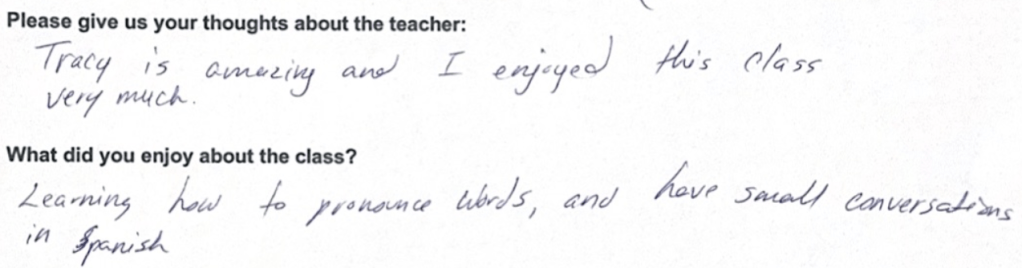 Please give us your thoughts about the teacher:
Tracy is amazing and I enjoyed this class
very much.
What did you enjoy about the class?
Learning how to pronounce words, and have small conversations
in Spanish